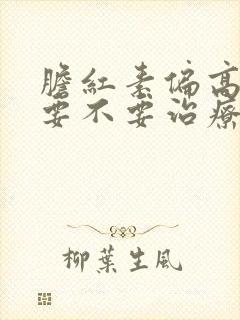 膽紅素偏高
要不要治療
柳葉生風